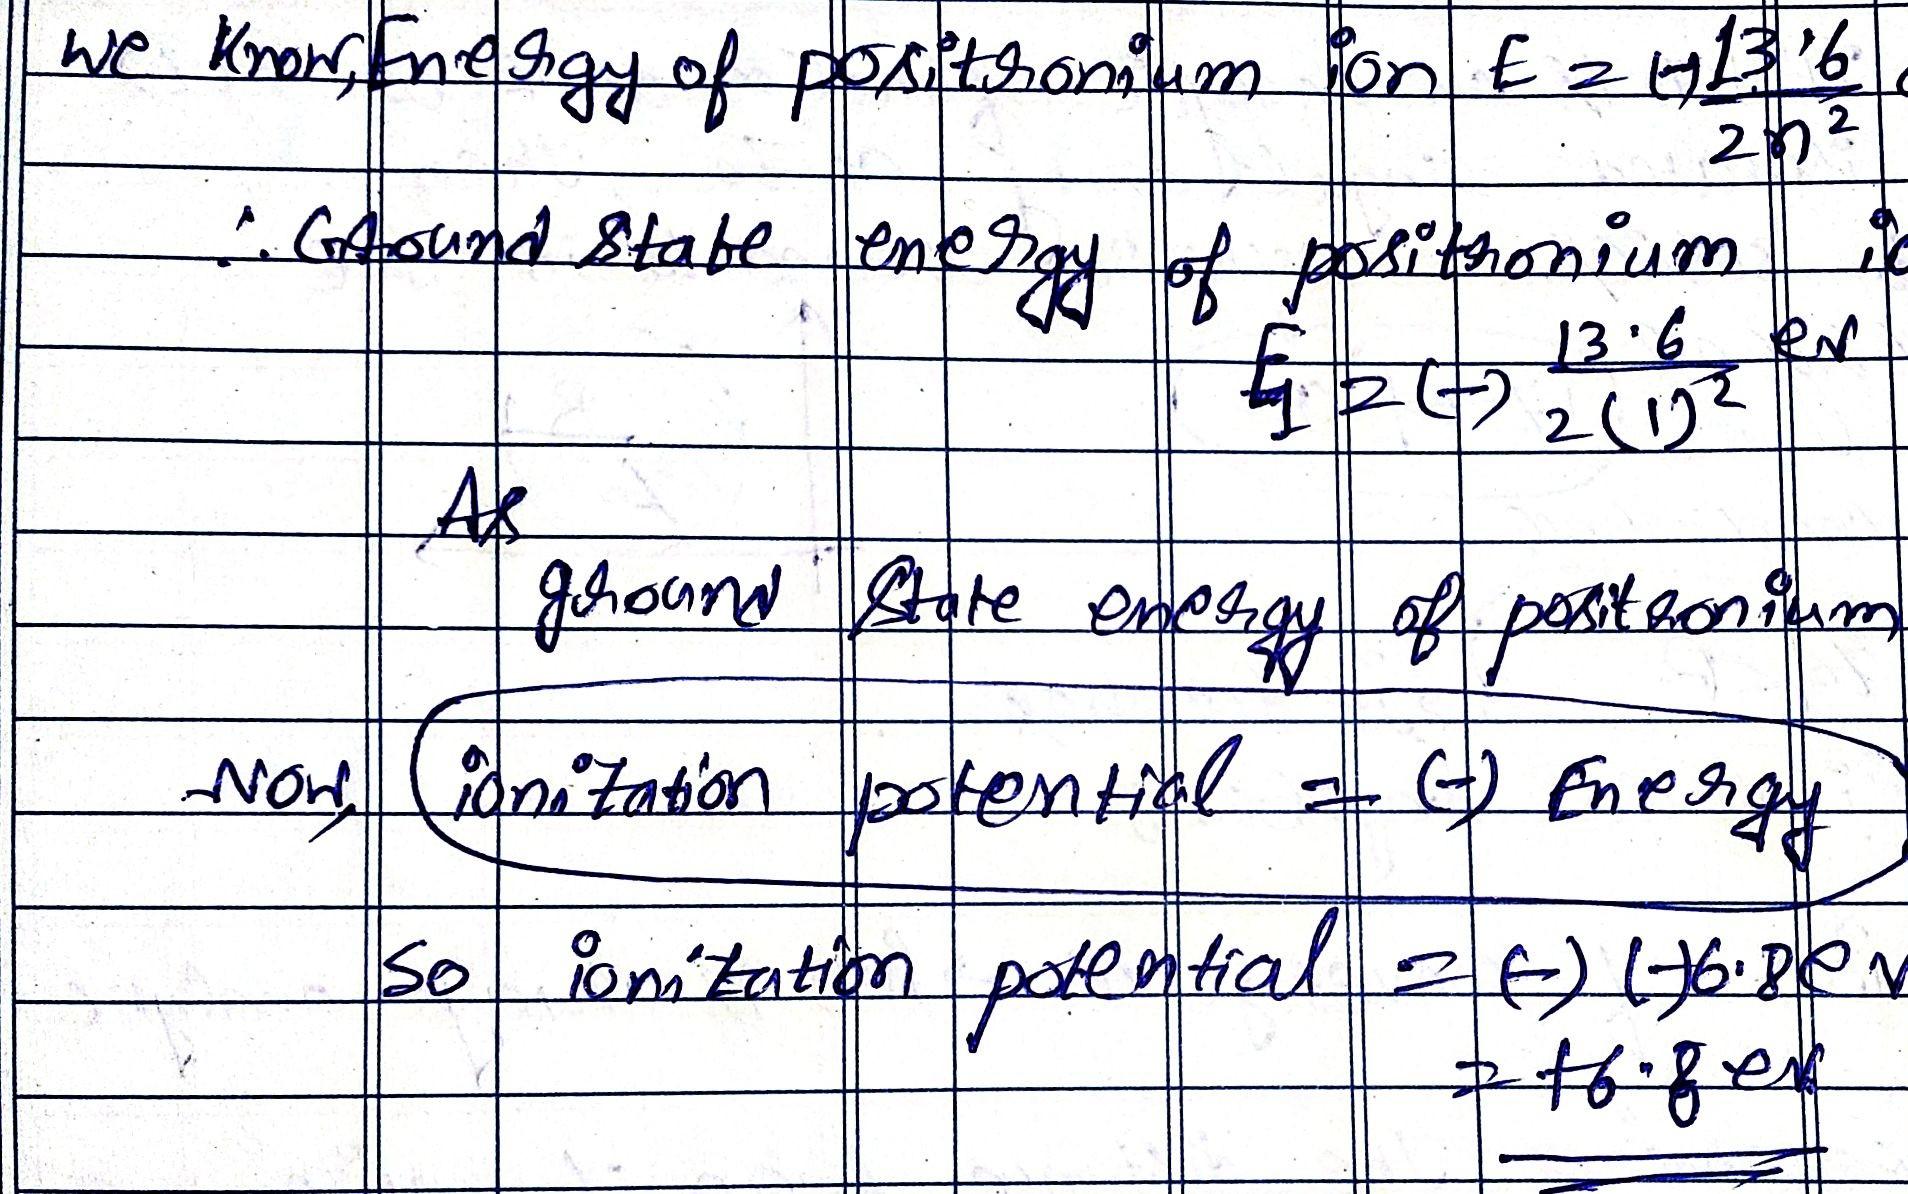 We know, Energy of positronium ion E = (-) 13.6 / 2n²
∴ Ground state energy of positronium
E₁ = (-) 13.6 / 2(1)² ev
As
ground state energy of positronium
Now, ionization potential = (-) Energy
So ionization potential = (-) (-)6.8 ev
= +6.8 ev